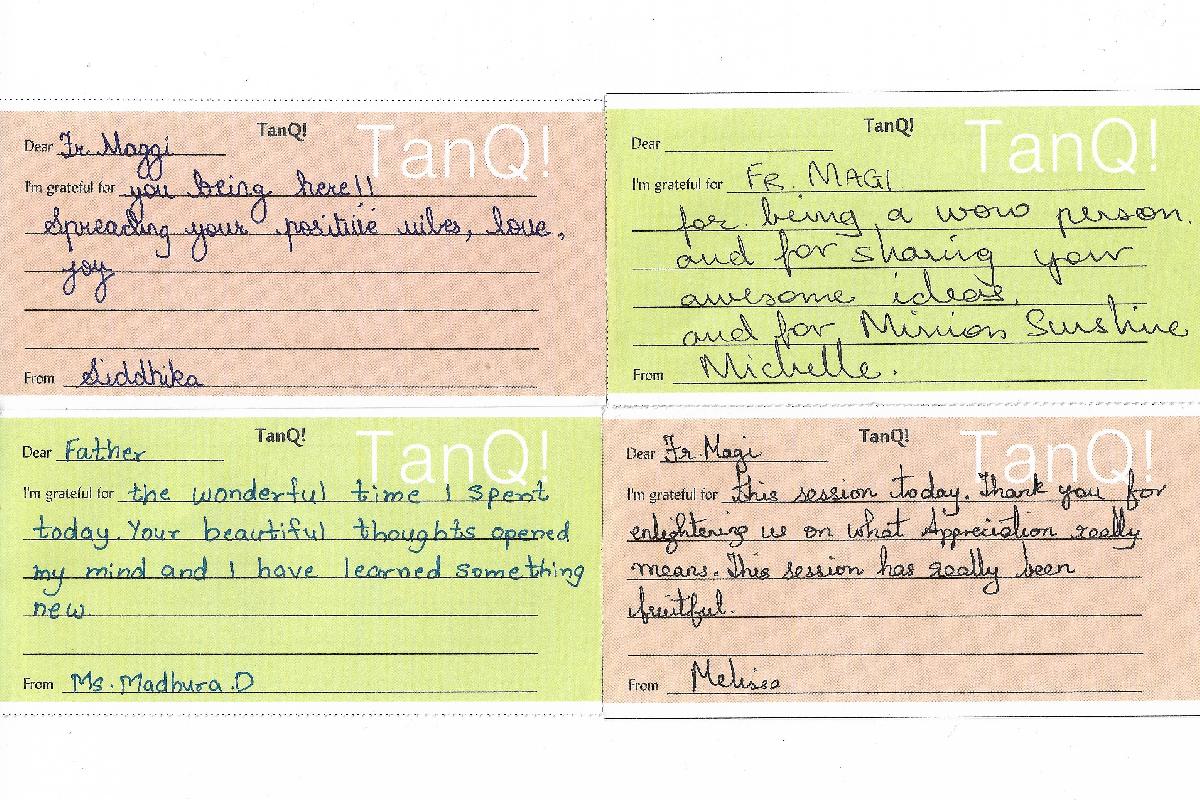 TanQ!
TanQ!
Dear Fr Maggi
I'm grateful for you being here!!
Spreading your positive vibes, love,
joy
From Siddhika
TanQ!
TanQ!
Dear
I'm grateful for FR. MAGI
for being a wow person.
and for sharing your
awesome ideas.
and for Minion Sunshine
From Michelle.
TanQ!
TanQ!
Dear Father
I'm grateful for the wonderful time I spent
today. Your beautiful thoughts opened
my mind and I have learned something
new.
From Ms. Madhura.D
TanQ!
TanQ!
Dear Fr. Magi
I'm grateful for this session today. Thank you for
enlightering us on what Appreciation really
means. This session has really been
fruitful.
From Melissa